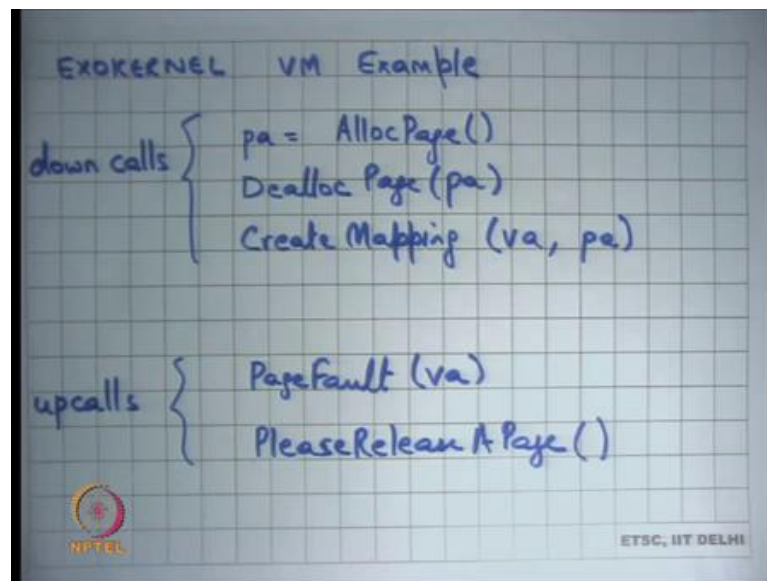 EXOKERNEL VM Example
down calls { pa = AllocPage()
Dealloc Page (pa)
Create Mapping (va, pa)
upcalls { PageFault (va)
PleaseReleaseAPage()
NPTEL
ETSC, IIT DELHI